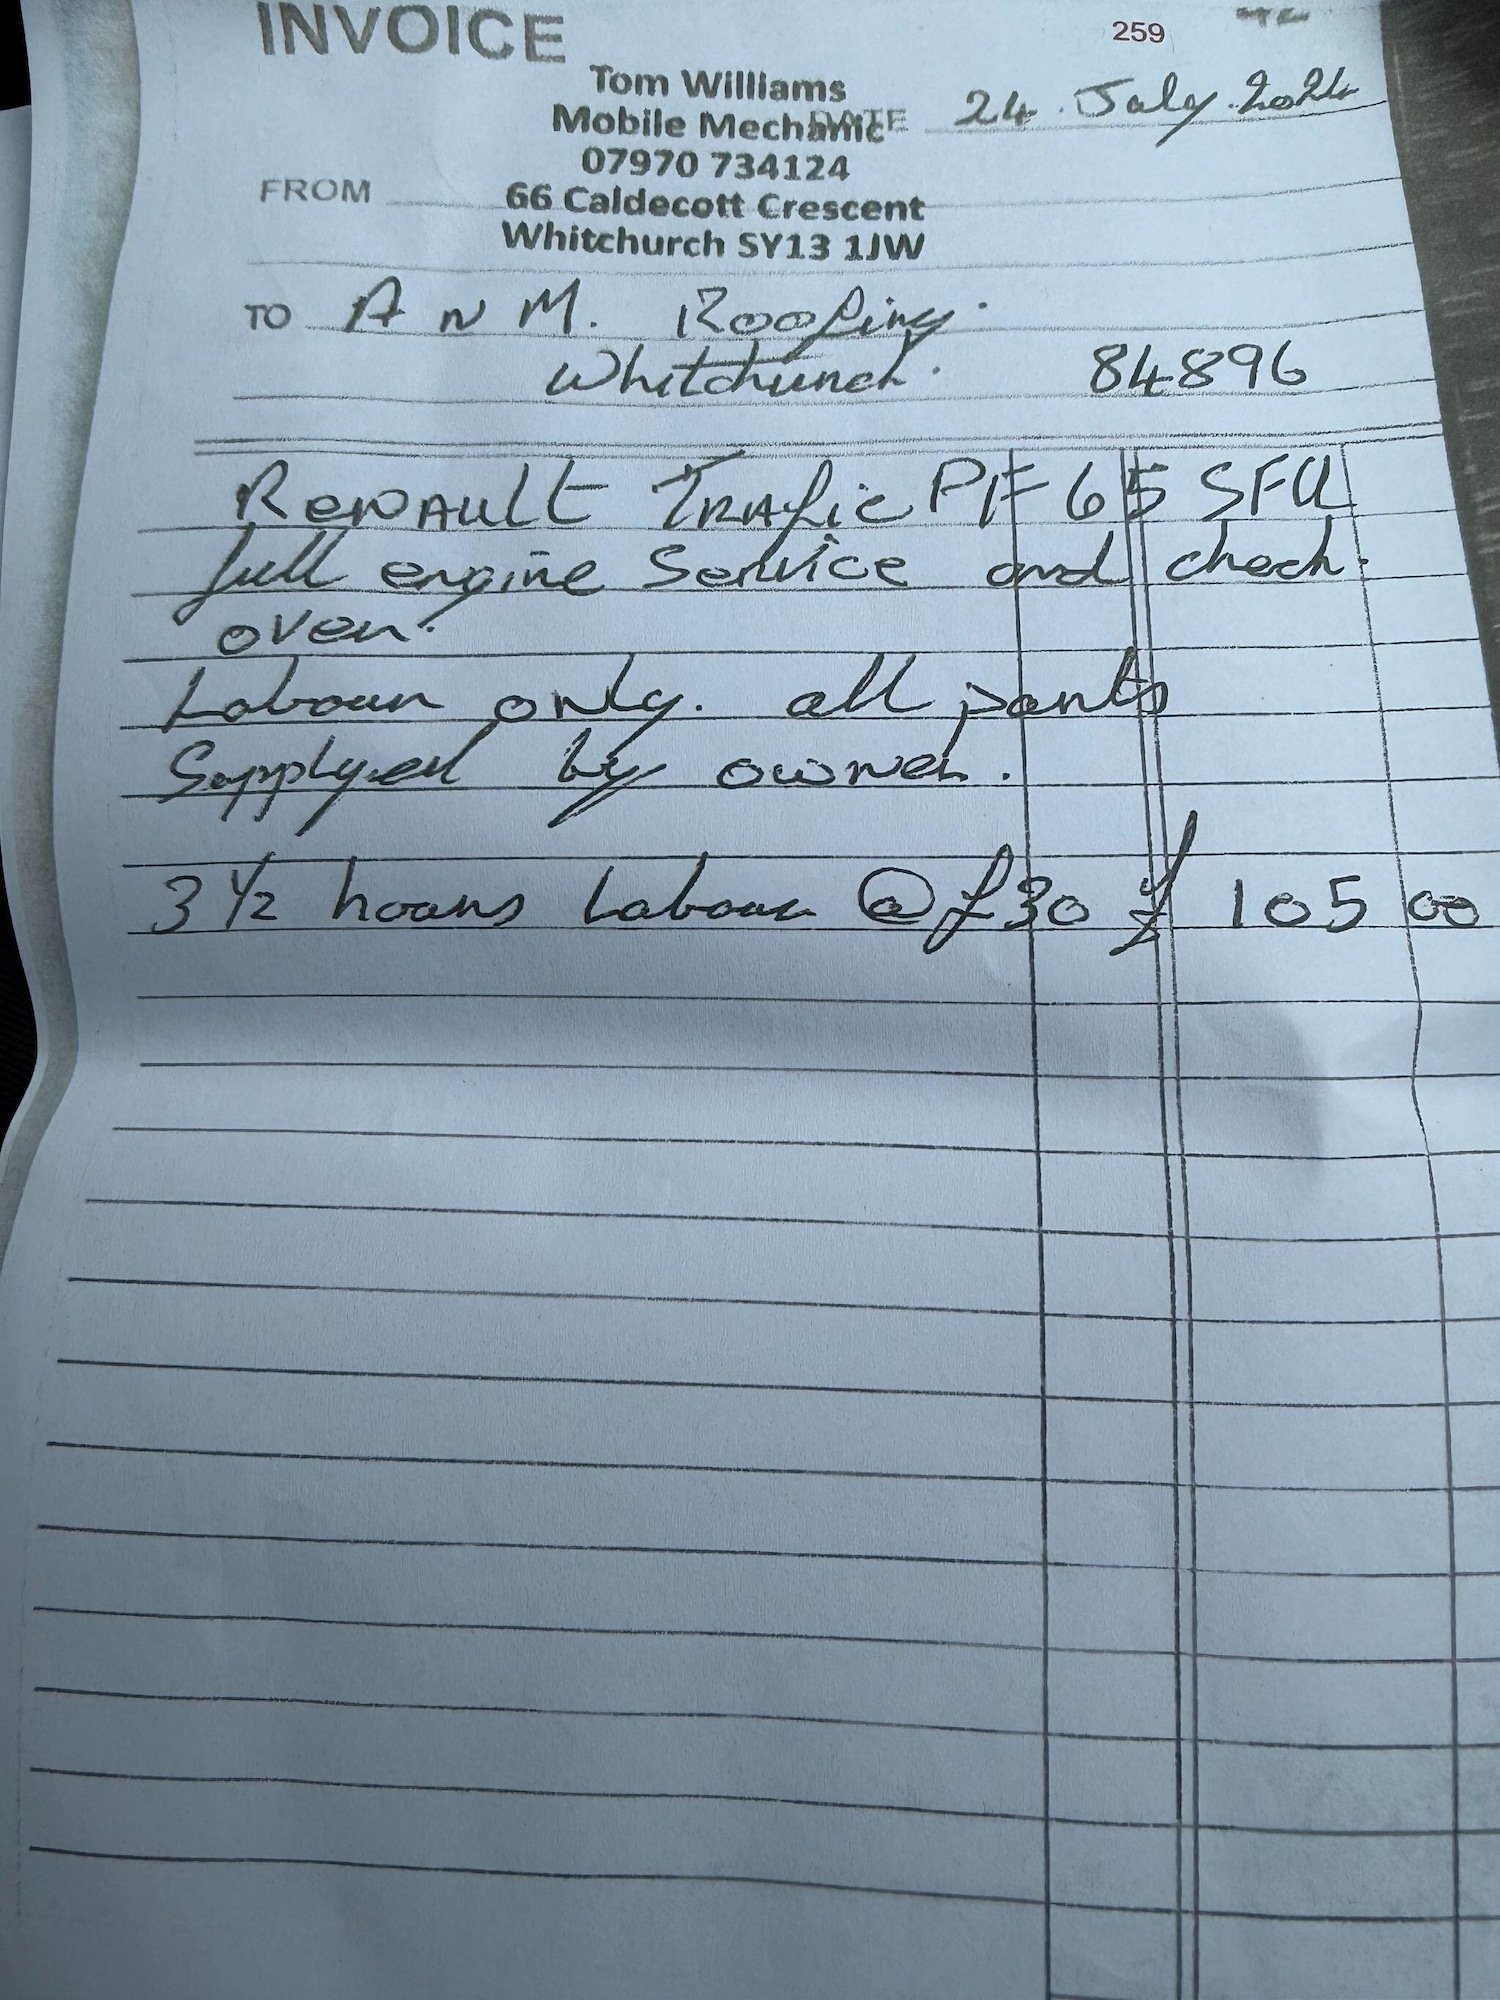 INVOICE
259
Tom Williams
Mobile Mechanic
DATE 24 July 2024
07970 734124
FROM
66 Caldecott Crescent
Whitchurch SY13 1JW
TO A N M. Roofing.
Whitchurch. 84896
Renault Trafic PF65 SFU
full engine Service and check
over.
Labour only. all parts
Supplyed by owner.
3 1/2 hours Labour @ £30 £ 105 00